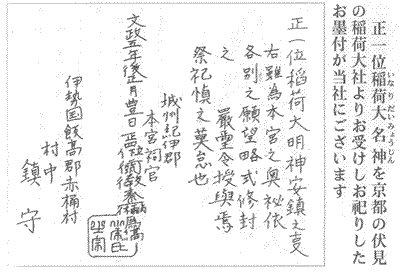 正一位稲荷大名神を京都の伏見
の稲荷大社よりお受けしお祀りした
お墨付が当社にございます
正一位稲荷大明神安鎮之夏
右雖為本宮之奥祕依
各別之願望略式修封
之　厳重令授与焉
祭祀慎之莫怠也
城州紀伊郡
本宮祠官
文政五年後正月豊日
伊勢国飯高郡赤桶村
村中
鎮守